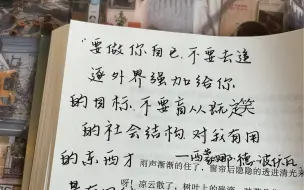 "要做你自己,不要去追
逐外界强加给你
的目标,不要盲从既定
的社会结构 对我有用
的东西才
——西蒙娜·德·波伏瓦
雨声渐渐的住了，窗帘后隐隐的透进清光
呀！凉云散了，树叶上的